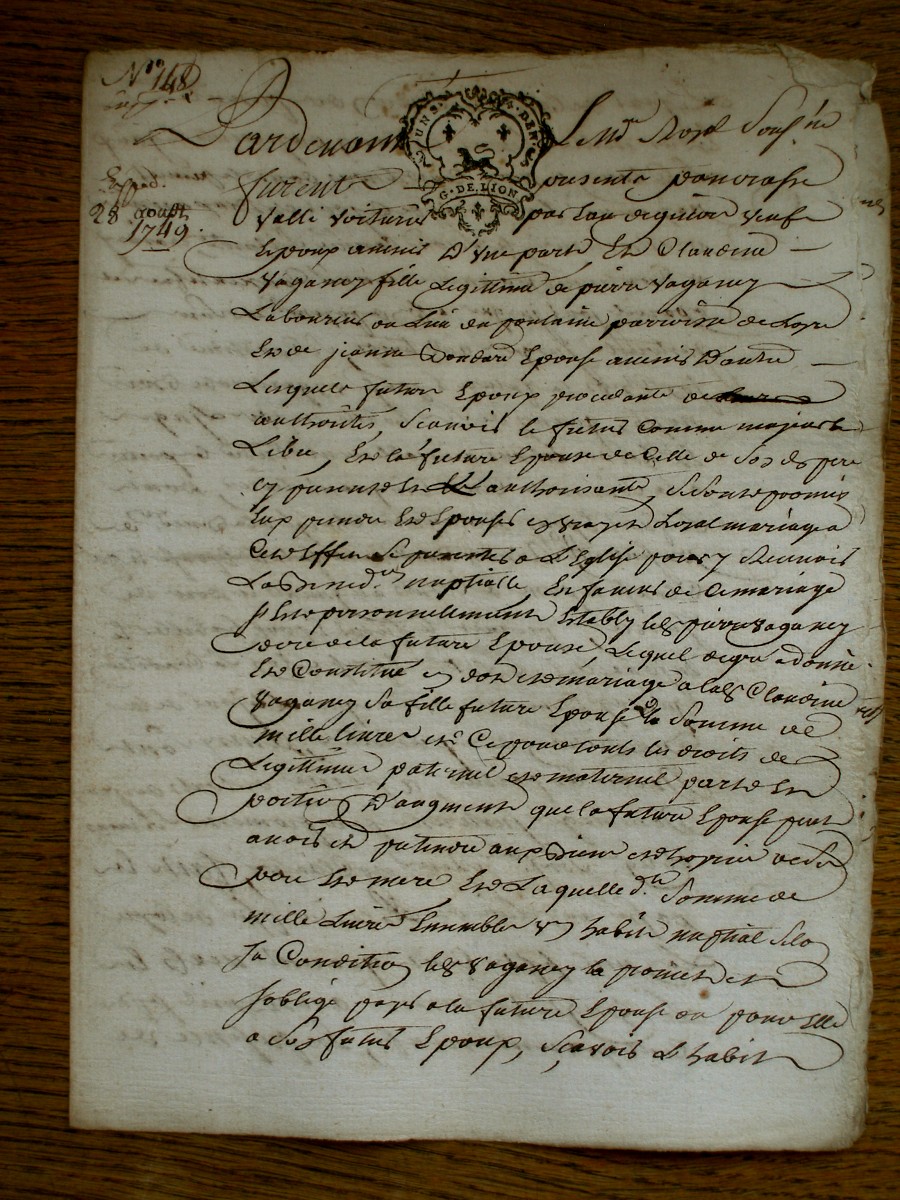 N° 148
Exped.
28 aoust
1749.
UNS. DEN. S
G. DE LION
Pardevant Le No.re Royal Sous.né
furent presents pancrasse
Valli Voiturier par Eau de givors veuf
Epoux avenir D'Une part, Et Claudine
Vaganey fille Legitime de pierre Vaganey
Laboureur du Lieu de fontaine parroisse de Loyre
Et de jeanne Epouse avenir D'autre
Lesquels futurs Epoux procedants de
authorités, Scavoir le futur Comme majeur &
Libre, Et la future Epouse de Celle de Ses d. pere
et Et authorisante, Se sont promis
Eux prendre Et Epouser en vray Et Loyal mariage a
Cet Effet Se presenter a L'Eglise pour y Recevoir
La Bened.on nuptialle, En faveur de Ce mariage
s'Est personnellement Estably led. pierre Vaganey
pere de la future Epouse, Lequel de gré a donné
Et Constitué en dot Et mariage a lad. Claudine
Vaganey Sa fille future Epouse la Somme de
mille livres et Ce pour touts les droits de
Legitime paternel Et maternel part Et
portion D'augment que la future Epouse peut
avoir Et pretendre aux Biens Et hoyrie de Ses
pere Et mere Et Laquelle d.te Somme de
mille Livres Ensemble Un habit nuptial Selon
Sa Condition led. Vaganey la promet Et
s'oblige payer a la future Epouse ou pour Elle
a Son futur Epoux, Scavoir L'habit